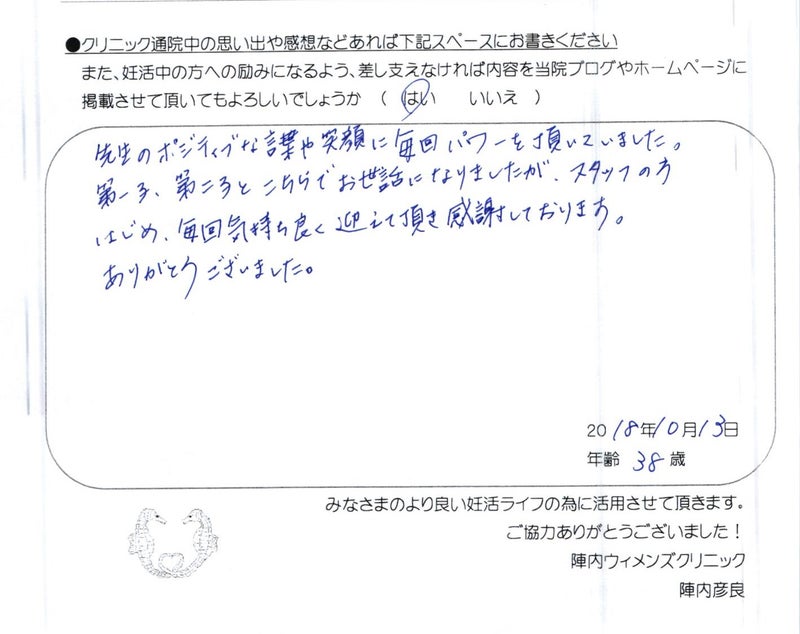 ●クリニック通院中の思い出や感想などあれば下記スペースにお書きください
また、妊活中の方への励みになるよう、差し支えなければ内容を当院ブログやホームページに
掲載させて頂いてもよろしいでしょうか （ はい　いいえ ）
先生のポジティブな言葉や笑顔に毎回パワーを頂いていました。
第一子、第二子とこちらでお世話になりましたが、スタッフの方
はじめ、毎回気持ち良く迎えて頂き感謝しております。
ありがとうございました。
2018年10月13日
年齢 38歳
みなさまのより良い妊活ライフの為に活用させて頂きます。
ご協力ありがとうございました！
陣内ウィメンズクリニック
陣内彦良